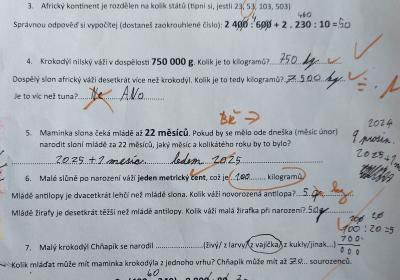 3. Africký kontinent je rozdělen na kolik států (tipni si, jestli 23, 53, 103, 503)
Správnou odpověď si vypočítej (dostaneš zaokrouhlené číslo): 2 400 : 600 + 2 . 230 : 10 = 50
460
4. Krokodýl nilský váží v dospělosti 750 000 g. Kolik je to kilogramů? 750 kg
Dospělý slon africký váží desetkrát více než krokodýl. Kolik je to tedy kilogramů? 7 500 kg
Je to víc než tuna? Ne ANO
BŘ →
5. Maminka slona čeká mládě až 22 měsíců. Pokud by se mělo ode dneška (měsíc únor)
narodit sloní mládě za 22 měsíců, jaký měsíc a kolikátého roku by to bylo?
2024
9 prosin.
2025+1
2025 + 1 mesic leden 2025
6. Malé slůně po narození váží jeden metrický cent, což je 100 kilogramů
Mládě antilopy je dvacetkrát lehčí než mládě slona. Kolik váží novorozená antilopa? 5 kg
Mládě žirafy je desetkrát těžší než mládě antilopy. Kolik váží malá žirafka při narození? 50
100 : 20 = 5
7. Malý krokodýl Chňapík se narodil (živý/ z larvy/ z vajíčka/ z kukly/jinak
Kolik mláďat může mít maminka krokodýla z jednoho vrhu? Chňapík může mít až 20 sourozenců.
60